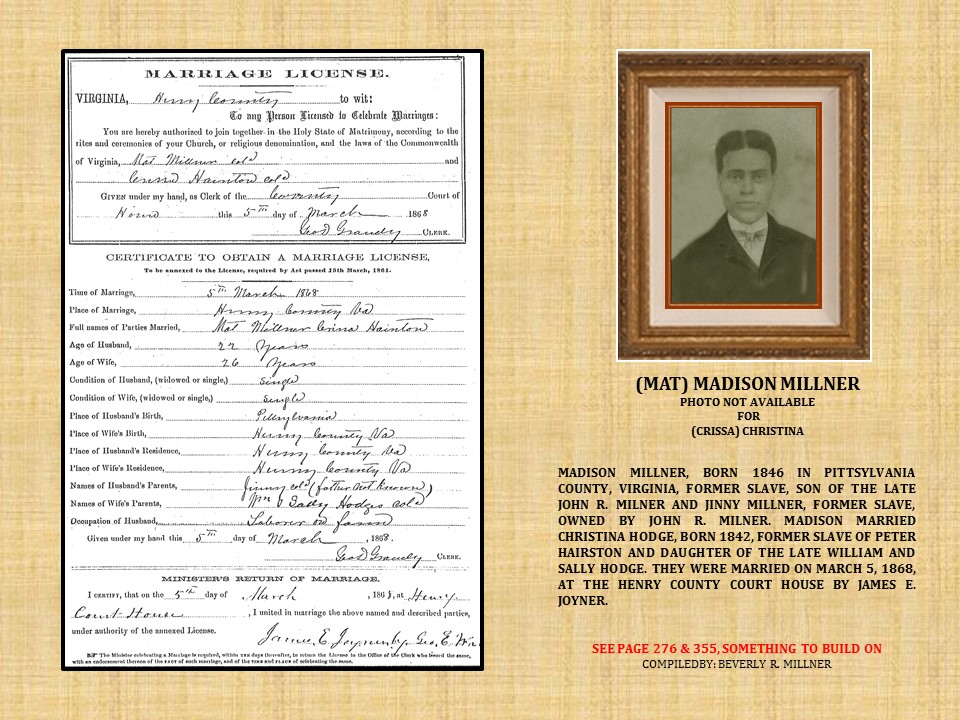 MARRIAGE LICENSE.
VIRGINIA, Henry County to wit:
To any Person Licensed to Celebrate Marriages:
You are hereby authorized to join together in the Holy State of Matrimony, according to the
rites and ceremonies of your Church, or religious denomination, and the laws of the Commonwealth
of Virginia, Mat Millner cold and
Hairston cold
GIVEN under my hand, as Clerk of the County Court of
this 5th day of March 1868
CLERK.
CERTIFICATE TO OBTAIN A MARRIAGE LICENSE,
To be annexed to the License, required by Act passed 15th March, 1861.
Time of Marriage, 5th March 1868
Place of Marriage, Henry County Va
Full names of Parties Married, Mat Millner Hairston
Age of Husband, 22 Years
Age of Wife, 26 Years
Condition of Husband, (widowed or single,) Single
Condition of Wife, (widowed or single,) Single
Place of Husband's Birth,
Place of Wife's Birth, Henry County Va
Place of Husband's Residence, Henry County Va
Place of Wife's Residence, Henry County Va
Names of Husband's Parents, Jinny cold (father not known)
Names of Wife's Parents, Wm & Sally Hodges cold
Occupation of Husband, Laborer on farm
Given under my hand this 5th day of March, 1868.
CLERK.
MINISTER'S RETURN OF MARRIAGE.
I CERTIFY, that on the 5th day of March, 1868, at Henry
Court House, I united in marriage the above named and described parties,
under authority of the annexed License.
James E Joyner by Geo. E.
The Minister celebrating a Marriage is required, within TEN days thereafter, to return the License to the Office of the Clerk who issued the same,
with an endorsement thereon of the FACT of such marriage, and of the TIME and PLACE of celebrating the same.
(MAT) MADISON MILLNER
PHOTO NOT AVAILABLE
FOR
(CRISSA) CHRISTINA
MADISON MILLNER, BORN 1846 IN PITTSYLVANIA
COUNTY, VIRGINIA, FORMER SLAVE, SON OF THE LATE
JOHN R. MILNER AND JINNY MILLNER, FORMER SLAVE,
OWNED BY JOHN R. MILNER. MADISON MARRIED
CHRISTINA HODGE, BORN 1842, FORMER SLAVE OF PETER
HAIRSTON AND DAUGHTER OF THE LATE WILLIAM AND
SALLY HODGE. THEY WERE MARRIED ON MARCH 5, 1868,
AT THE HENRY COUNTY COURT HOUSE BY JAMES E.
JOYNER.
SEE PAGE 276 & 355, SOMETHING TO BUILD ON
COMPILEDBY: BEVERLY R. MILLNER